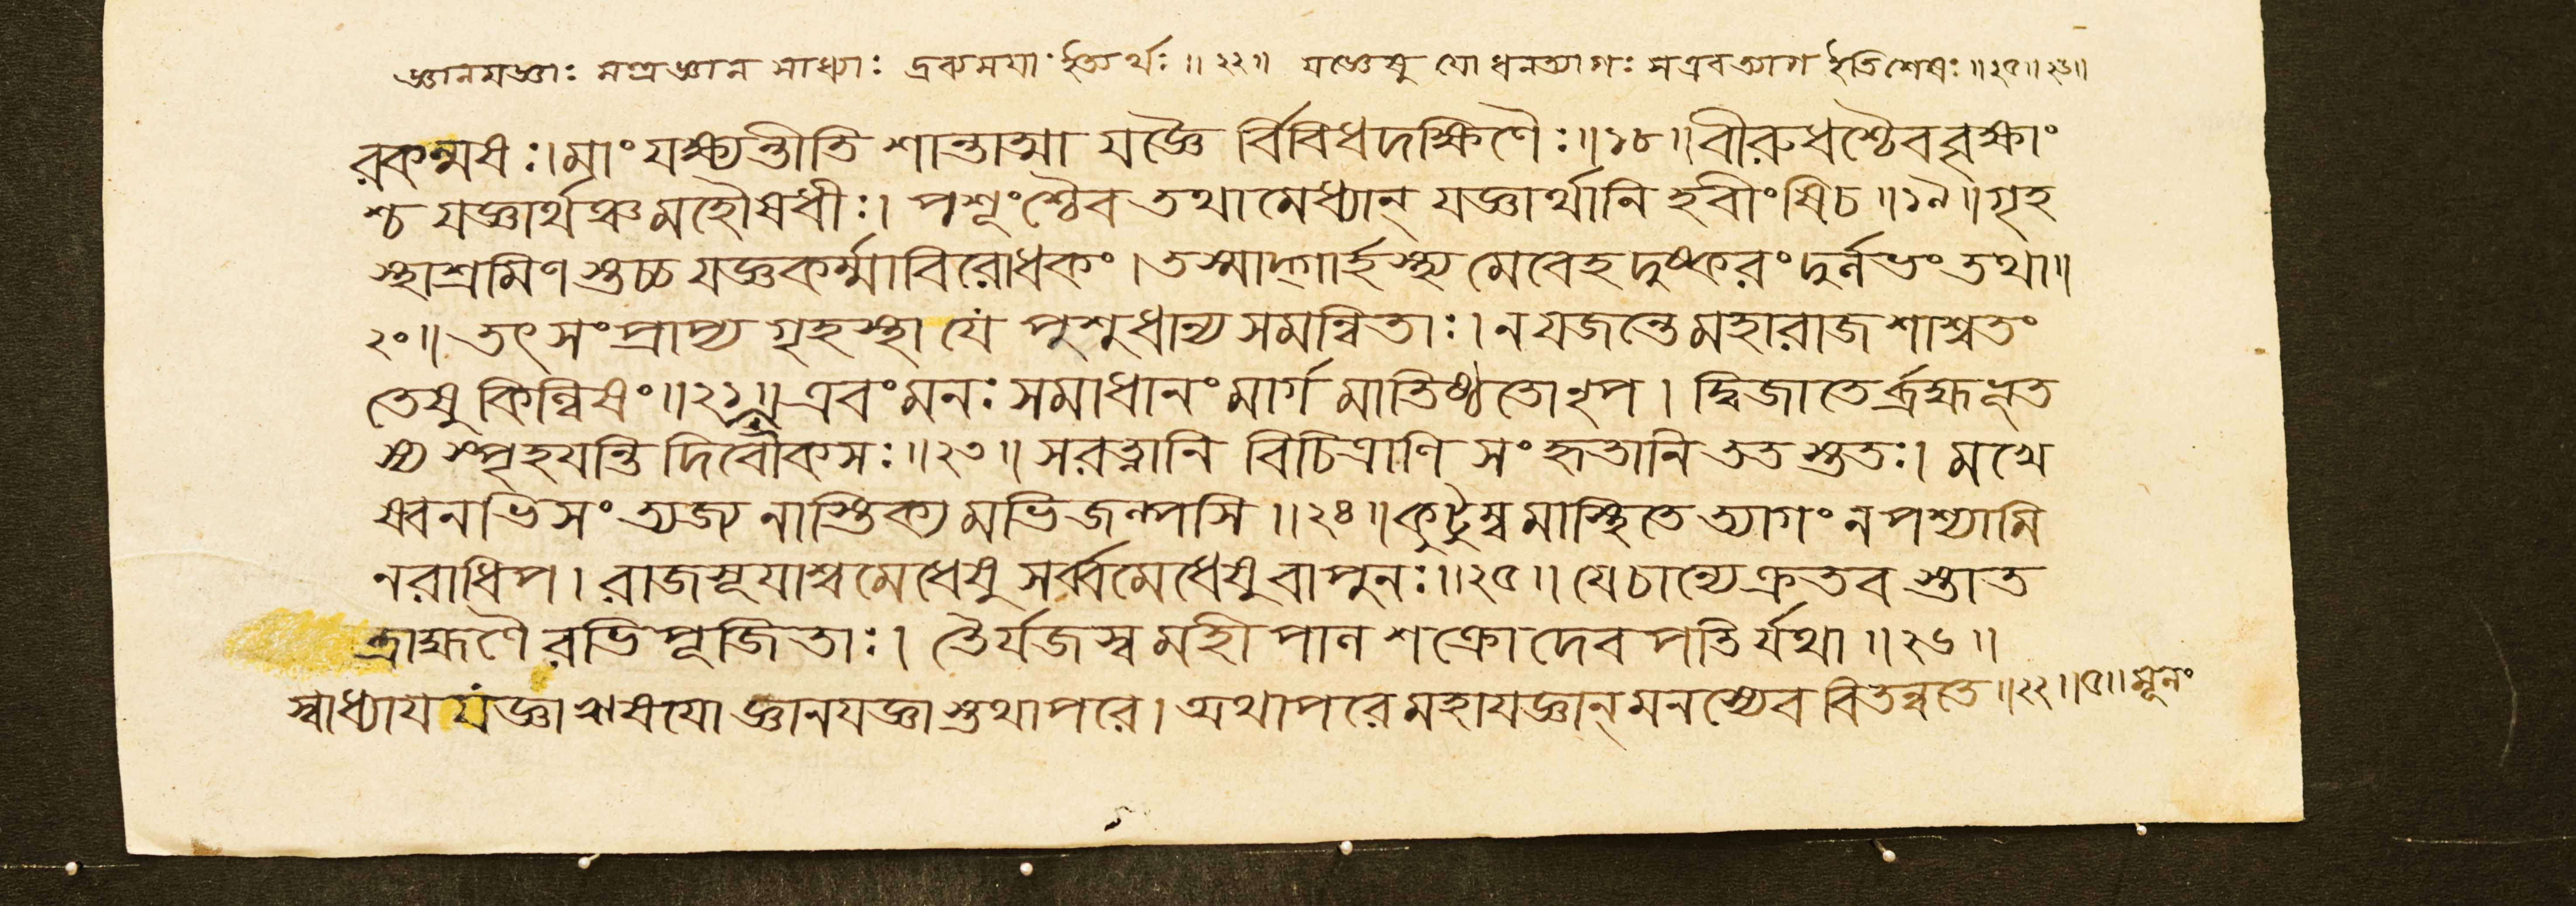 জ্ঞানযজ্ঞাঃ মন্ত্রজ্ঞান সাধ্যাঃ দ্রব্যময়া ইত্যর্থঃ ॥ ২২॥ যজ্ঞেষু যো ধনত্যাগঃ স এব ত্যাগ ইতিশেষঃ ॥২৫॥২৬॥
রকল্মষঃ। মাং যক্ষ্যন্তীতি শান্তাত্মা যজ্ঞৈ র্বিবিধদক্ষিণৈঃ ॥১৮॥ বীরুধশ্চৈব বৃক্ষাং
শ্চ যজ্ঞার্থঞ্চ মহৌষধীঃ। পশূংশ্চৈব তথা মেধ্যান্ যজ্ঞার্থানি হবীংষিচ ॥১৯॥ গৃহ
স্থাশ্রমিণ স্তচ্চ যজ্ঞকর্ম্মাবিরোধকং। তস্মাদ্গার্হস্থ্য মেবেহ দুষ্করং দুর্লভং তথা॥
২০॥ তৎ সংপ্রাপ্য গৃহস্থা যে পশুধান্য সমন্বিতাঃ। ন যজন্তে মহারাজ শাশ্বতং
তেষু কিল্বিষং ॥২১॥ এবং মনঃ সমাধানং মার্গ মাতিষ্ঠতো নৃপ। দ্বিজাতে র্ব্রহ্মভূত
স্য স্পৃহয়ন্তি দিবৌকসঃ ॥২৩॥ স রত্নানি বিচিত্রাণি সংহৃতানি ততস্ততঃ। মখে
ষ্বনভিসংত্যজ্য নাস্তিক্য মভিজল্পসি ॥২৪॥ কুটুম্ব মাস্থিতে ত্যাগং ন পশ্যামি
নরাধিপ। রাজসূয়াশ্বমেধেষু সর্ব্বমেধেষু বা পুনঃ॥২৫॥ যে চান্যে ক্রতব স্তাত
ব্রাহ্মণৈ রভিপূজিতাঃ। তৈ র্যজস্ব মহীপাল শক্রো দেবপতি র্যথা ॥২৬॥
স্বাধ্যায় যজ্ঞা ঋষয়ো জ্ঞানযজ্ঞা স্তথাপরে। অথাপরে মহাযজ্ঞান্ মনস্যেব বিতন্বতে ॥২২॥৫॥ মূলং